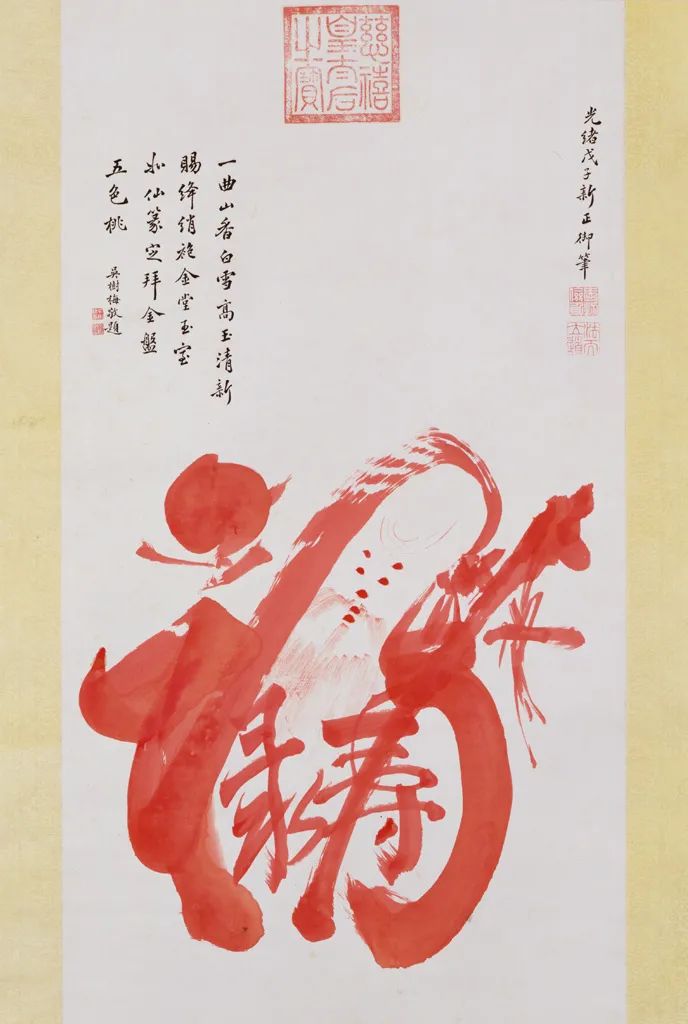 慈禧
皇太后
之寶
光緒戊子新正御筆
一曲山香白雪高玉清新
賜絳綃袍金堂玉室
仙篆定拜金盤
五色桃
吳樹梅敬題
福
禄寿